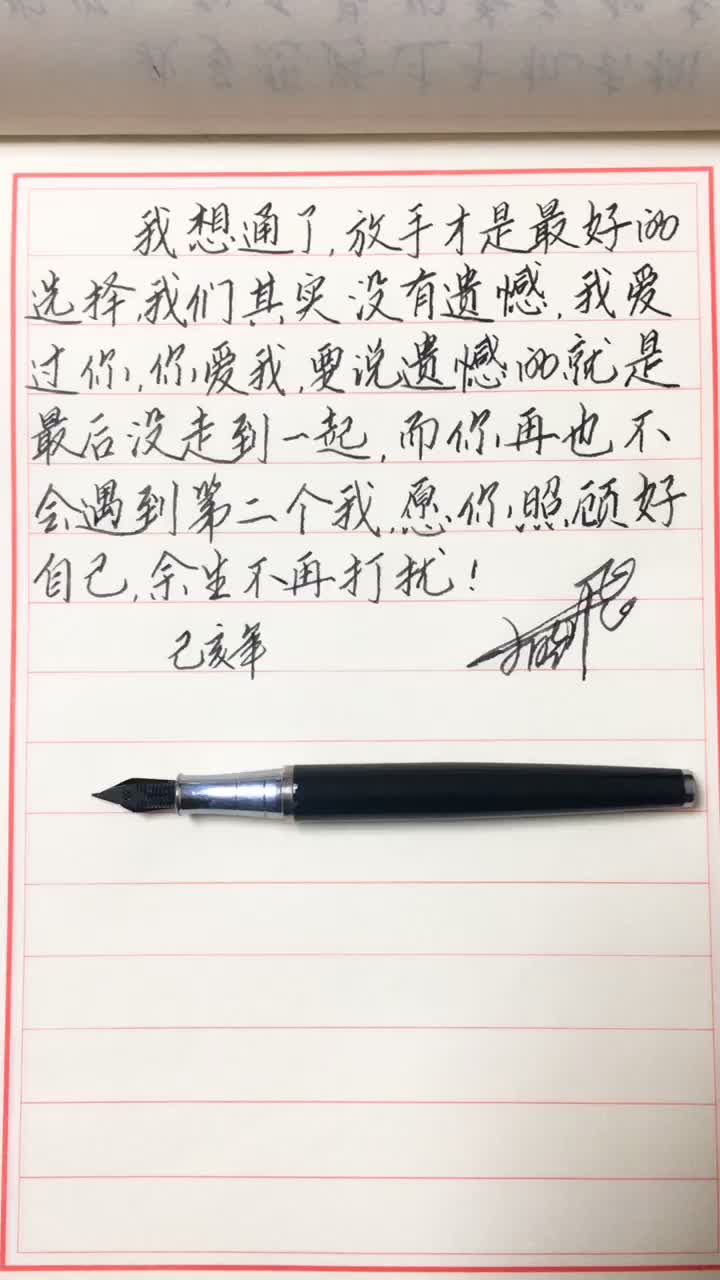 我想通了,放手才是最好的
选择,我们其实没有遗憾,我爱
过你,你爱我,要说遗憾的就是
最后没走到一起,而你再也不
会遇到第二个我,愿你照顾好
自己,余生不再打扰!
己亥年